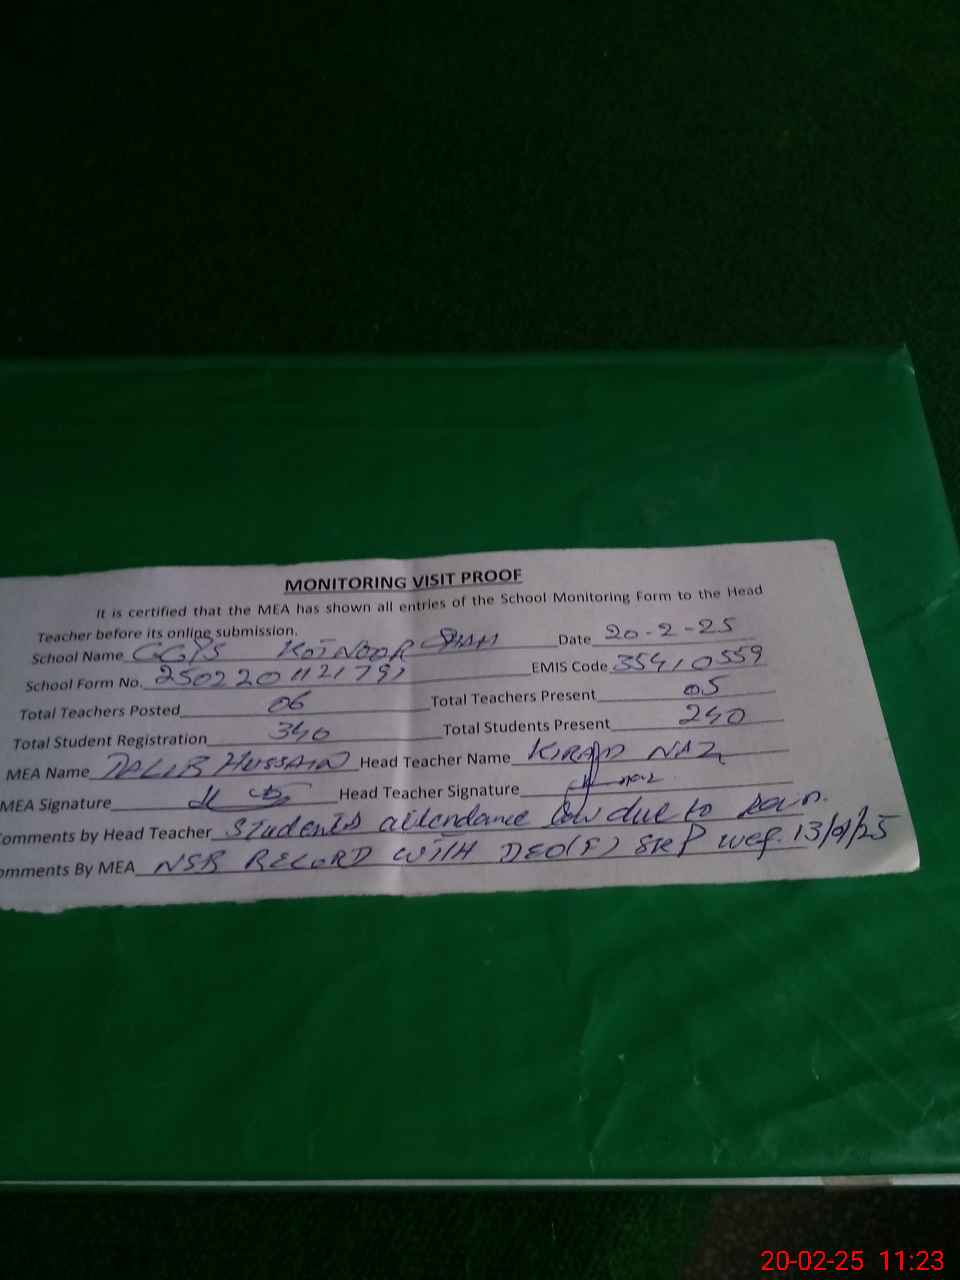 MONITORING VISIT PROOF
It is certified that the MEA has shown all entries of the School Monitoring Form to the Head
Teacher before its online submission.
School Name GGPS KOT NOOR SHAH Date 20-2-25
School Form No. EMIS Code 35410559
Total Teachers Posted 06 Total Teachers Present 05
Total Student Registration 340 Total Students Present 240
MEA Name HUSSAIN Head Teacher Name KIRAN NAZ
MEA Signature Head Teacher Signature
omments by Head Teacher Students attendance low due to rain.
omments By MEA NSB RECORD WITH DEO(F) SKP wef.
20-02-25 11:23